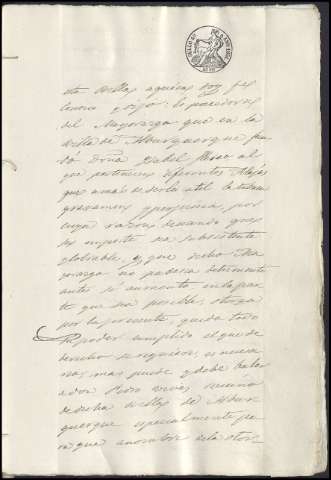 esta Villa, a quien doy fee
conozco y dijo: Es poseedora
del Mayorazgo que en la
Villa de Alburquerque fun-
dó Doña Isabel Perez al
que pertenecen diferentes Alajas
que a mas de serla util la
gravamen y perjuicio, por
cuya razon, deseando que
su importe sea subsistente
y laborable, y que dicho Ma-
yorazgo no padezca detrimento
antes si aumento en la par-
te que sea posible, otorga
por la presente, que da todo
su poder cumplido el que de
derecho se requiere, es necesa-
rio, mas puede y debe valer
a don Pedro vecino
de dicha Villa de Albur-
querque especialmente pa-
ra que a nombre de la otor-